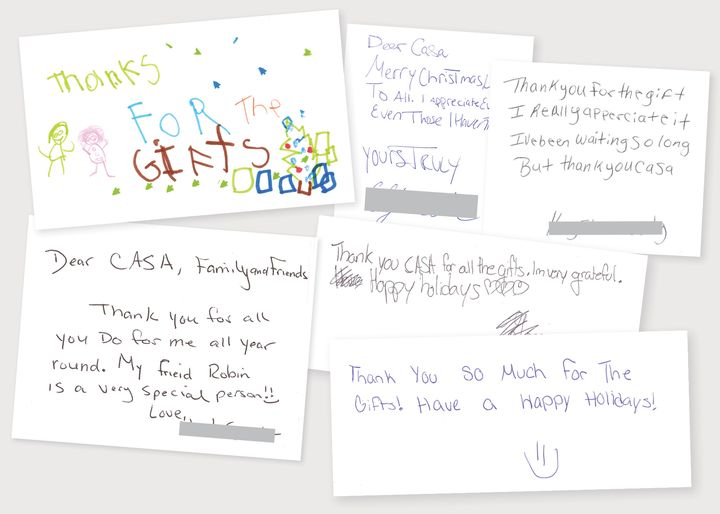 Thanks
FOR The
GIFTS
Dear Casa
Merry Christmas
To All. I appreciate
Even Those I Haven't
YOURS TRULY
Thankyou for the gift
I Really apperciate it
I've been waiting so long
But thankyou Casa
Dear CASA, Family and Friends
Thank you for all
you Do for me all year
round. My frieid Robin
is a very special person!!
Love,
Thank you CASA for all the gifts. Im very grateful.
Happy holidays
Thank You So Much For The
Gifts! Have a Happy Holidays!